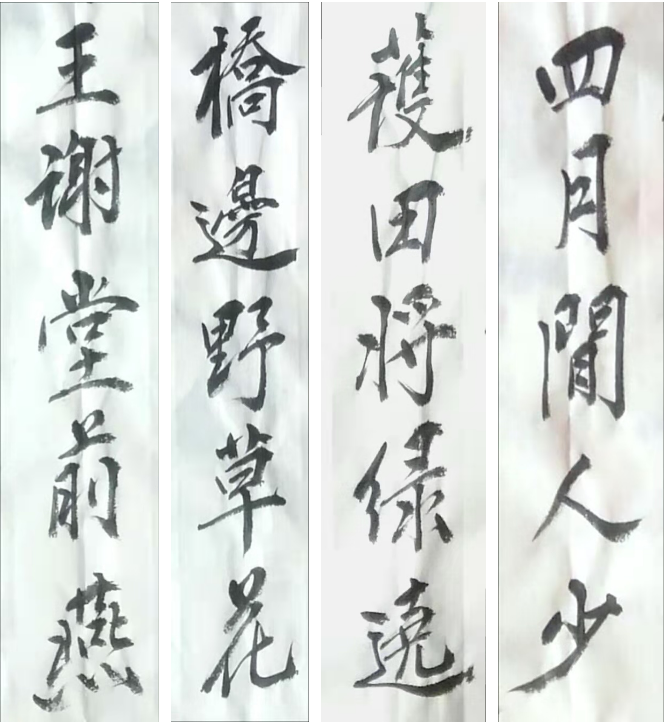 四月閒人少
護田将绿遶
橋邊野草花
王谢堂前燕